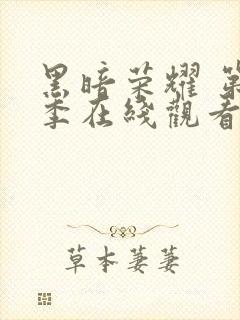 黑暗荣耀 第
季在綫觀看
草本萋萋